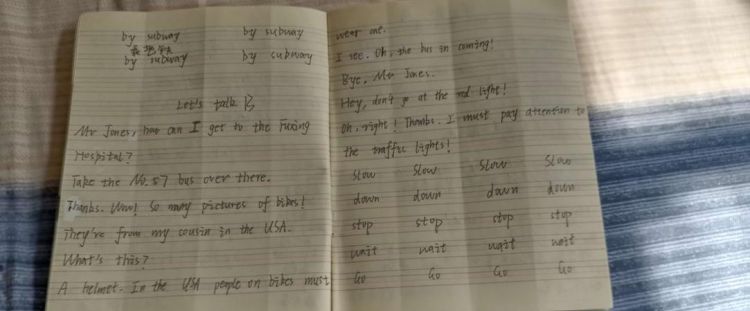 by subway by subway
乘地铁
by subway by subway
Let's talk B
Mr Jones, how can I get to the Fuxing
Hospital?
Take the No.57 bus over there.
Thanks. Wow! So many pictures of bikes!
They're from my cousin in the USA.
What's this?
A helmet. In the USA people on bikes must
wear one.
I see. Oh, the bus is coming!
Bye, Mr Jones.
Hey, don't go at the red light!
Oh, right! Thanks. I must pay attention to
the traffic lights!
Slow Slow Slow Slow
down down down down
stop stop stop stop
wait wait wait wait
Go Go Go Go